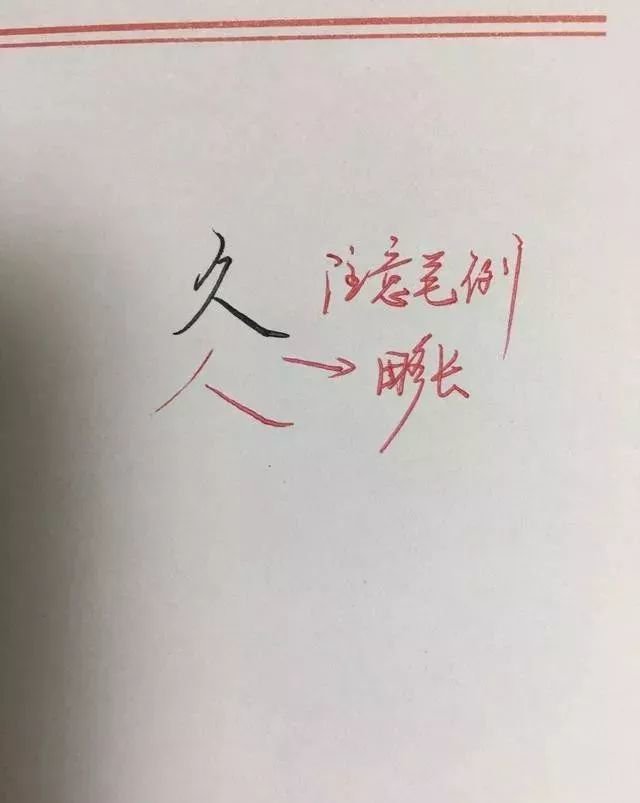 久 注意笔例
人 → 略长